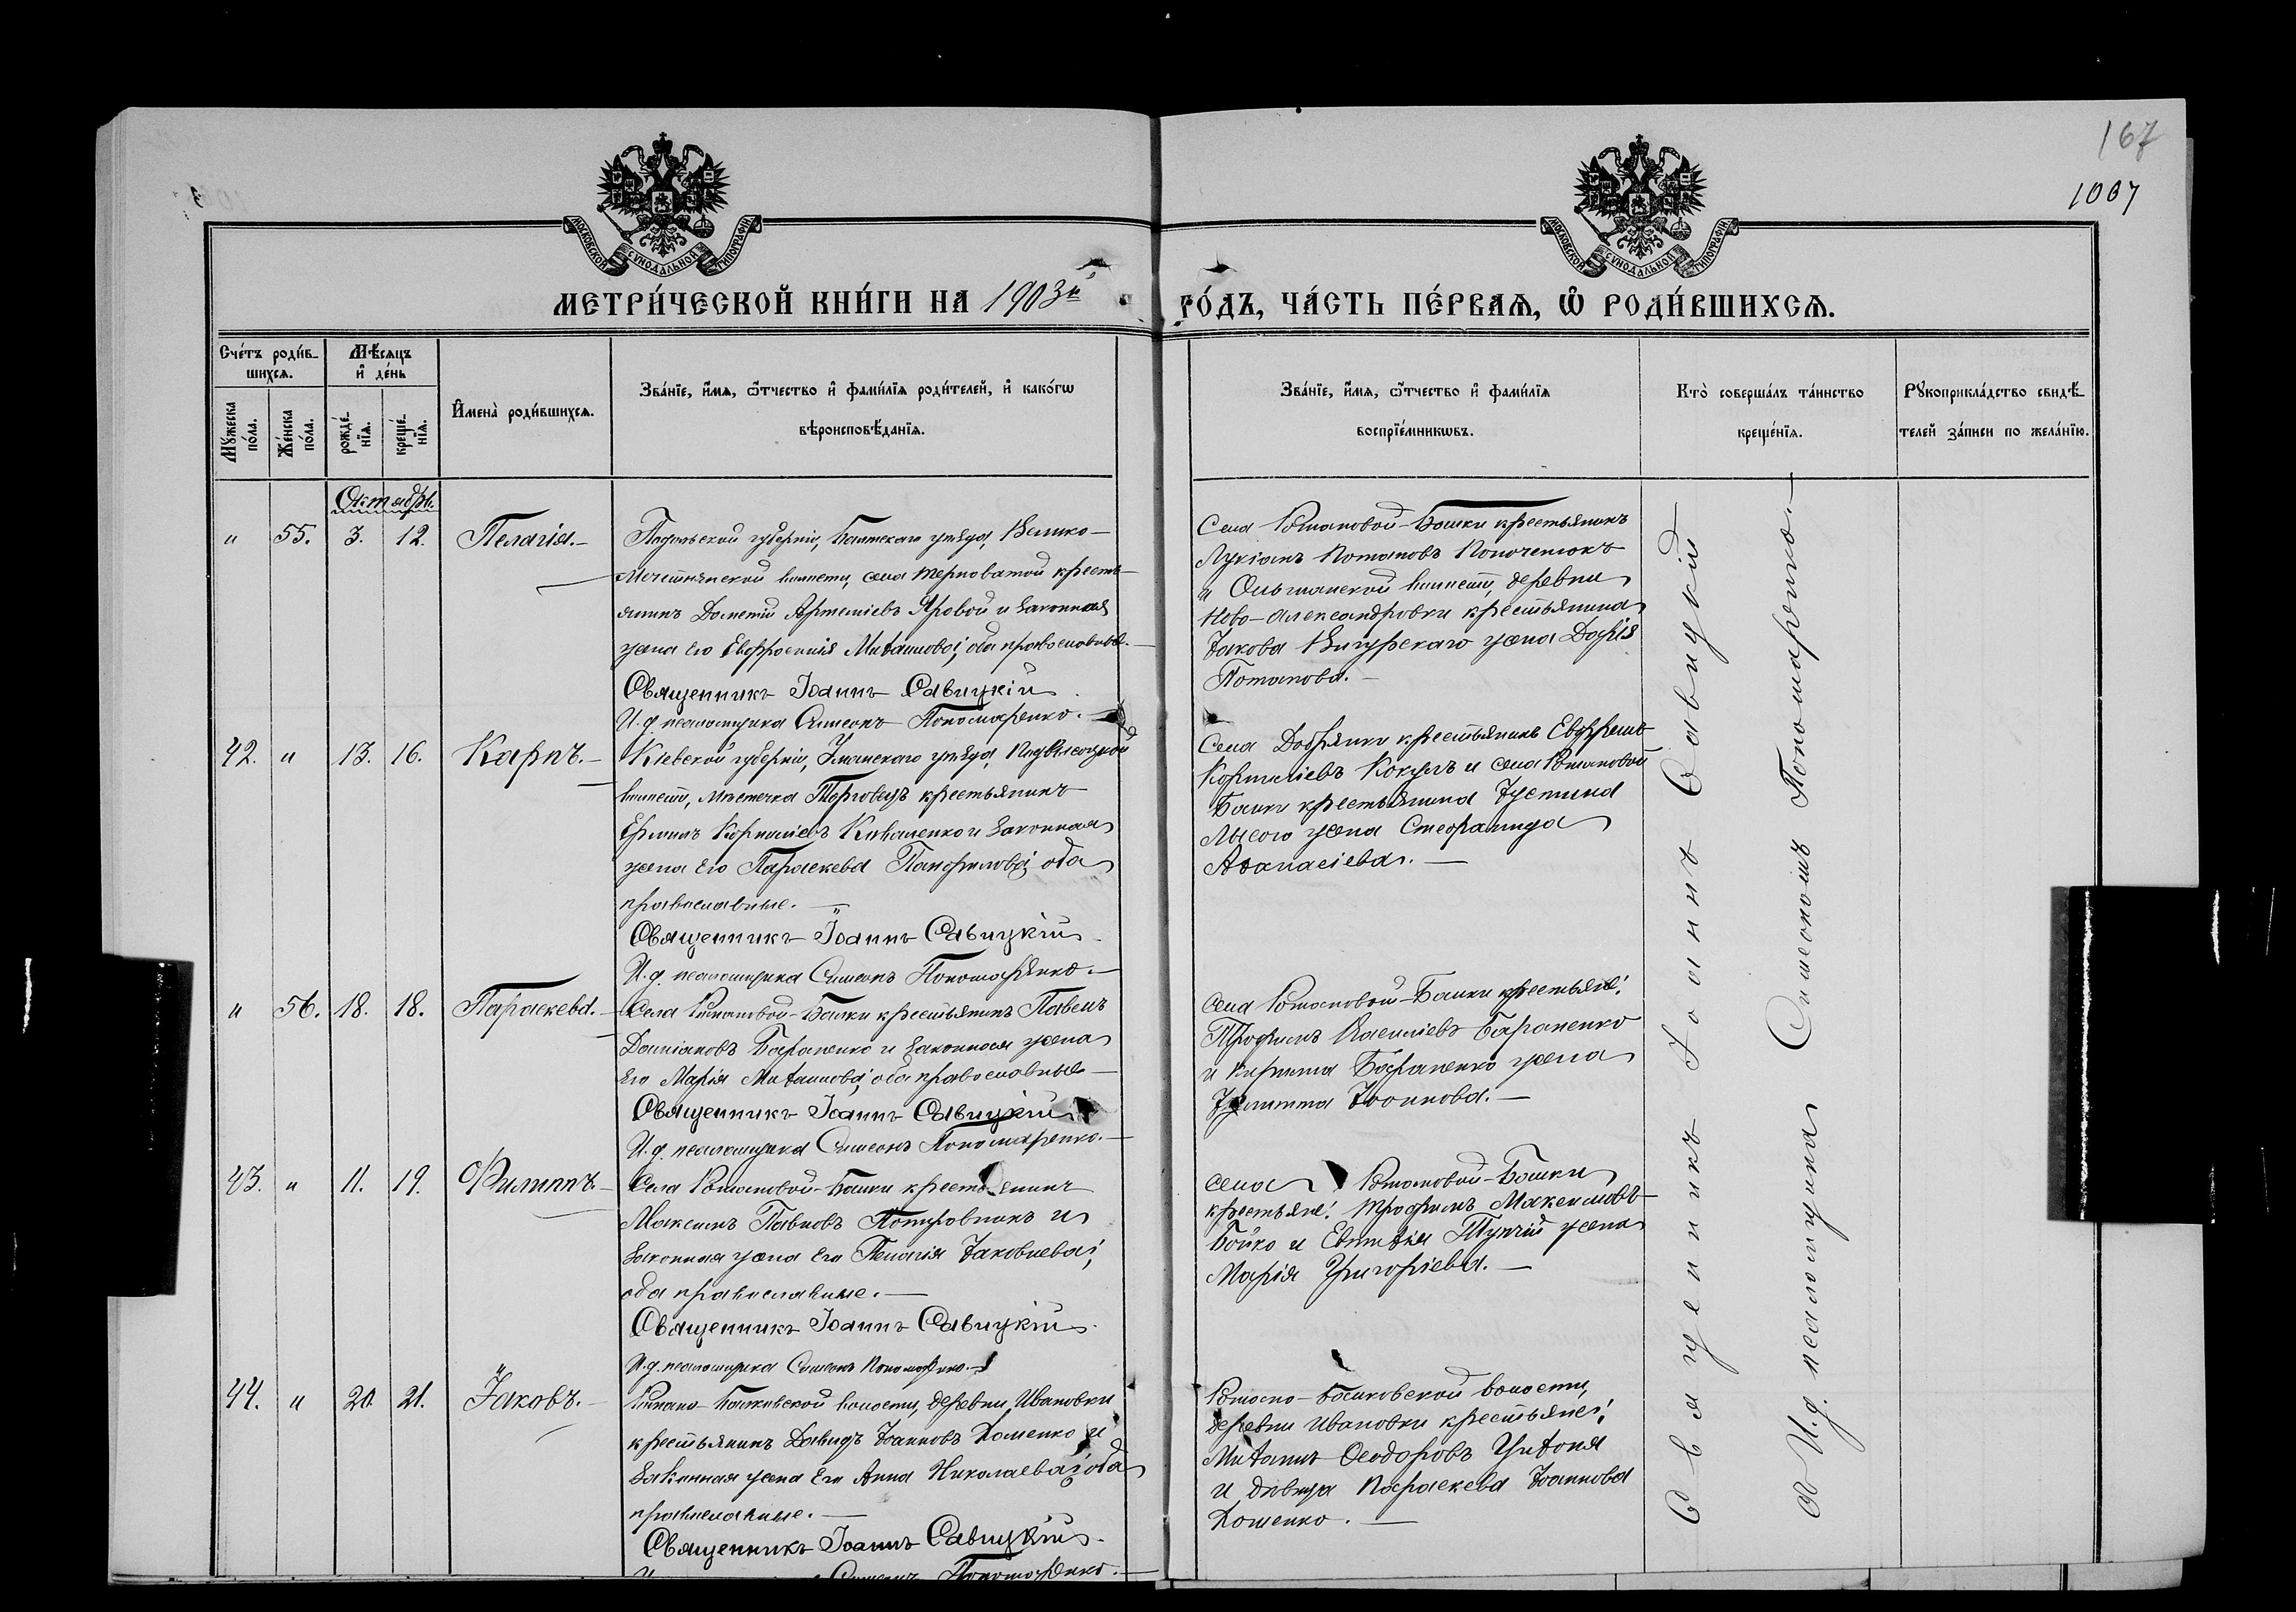 167
1007
МОСКОВСКОЙ СѴНОДАЛЬНОЙ ТИПОГРАФІИ
МОСКОВСКОЙ СѴНОДАЛЬНОЙ ТИПОГРАФІИ
МЕТРИ́ЧЕСКОЙ КНИ́ГИ НА 1903й
ГО́ДЪ, ЧА́СТЬ ПЕ́РВАѦ, Ѡ РОДИ́ВШИХСѦ.
Сче́тъ роди́в-
шихсѧ.
Мѣ́сѧцъ
и҆ де́нь
Мꙋ́жеска
по́ла.
Же́нска
по́ла.
рожде́-
нїѧ.
креще́-
нїѧ.
И҆мена̀ роди́вшихсѧ.
Зва́нїе, и҆́мѧ, ѻ҆́тчество и҆ фами́лїѧ роди́телей, и҆ како́гѡ
вѣроисповѣ́данїѧ.
Зва́нїе, и҆́мѧ, ѻ҆́тчество и҆ фами́лїѧ
воспрїе́мникѡвъ.
Кто̀ соверша́лъ та́инство
креще́нїѧ.
Рꙋкоприкла́дство свидѣ́-
телей за́писи по жела́нїю.
Октябрь.
" 55. 3. 12. Пелагія.-
Подольской губерніи, Балтскаго уѣзда, Велико-
Мечетнянской волости, села Терноватой кресть-
янинъ Дометій Артеміевъ Яровой и законная
жена его Евфросинія Михаилова, оба православные.-
Священникъ Іоаннъ Савицкій
И.д. псаломщика Симеонъ Пономаренко.-
Села Романовой-Балки крестьянинъ
Лукіанъ Потаповъ
и Ольшанской волости, деревни
Ново-Александровки крестьянина
Іакова жена Дарія
Потапова.-
42. " 13. 16. Карпъ.-
Кіевской губерніи, Уманскаго уѣзда, Подвысоцкой
волости, мѣстечка Торговицъ крестьянинъ
Корниліевъ Коваленко и законная
жена его Параскева Панфилова, оба
православные.-
Священникъ Іоаннъ Савицкій
И.д. псаломщика Симеонъ Пономаренко.-
Села Добрянки крестьянинъ
Корниліевъ и села Романовой
Балки крестьянина Іустина
Лысого жена Стефанида
Аѳанасіева.-
" 56. 18. 18. Параскева.-
Села Романовой-Балки крестьянинъ Павелъ
Даміановъ Бараненко и законная жена
его Марія Михаилова, оба православные-
Священникъ Іоаннъ Савицкій
И.д. псаломщика Симеонъ Пономаренко.-
Села Романовой-Балки крестьяне:
Трофимъ Василіевъ Бараненко
и Кирилла Бараненко жена
Іулитта Іоаннова.-
43. " 11. 19. Филиппъ.-
Села Романовой-Балки крестьянинъ
Максимъ Павловъ и
законная жена его Пелагія Іаковлева;
оба православные.-
Священникъ Іоаннъ Савицкій
И.д. псаломщика Симеонъ Пономаренко.-
Села Романовой-Балки
крестьяне: Трофимъ Максимовъ
Бойко и жена
Марія Григоріева.-
44. " 20. 21. Іаковъ.-
Романо-Балковской волости, деревни Ивановки
крестьянинъ Давидъ Іоанновъ Хоменко и
законная жена его Анна Николаева; оба
православные.-
Священникъ Іоаннъ Савицкій
Симеонъ Пономаренко.-
Романо-Балковской волости,
деревни Ивановки крестьяне:
Михаилъ Ѳеодоровъ
и дѣвица Параскева Іоаннова
Хоменко.-
Священникъ Іоаннъ Савицкій
И.д. псаломщика Симеономъ Пономаренко.-